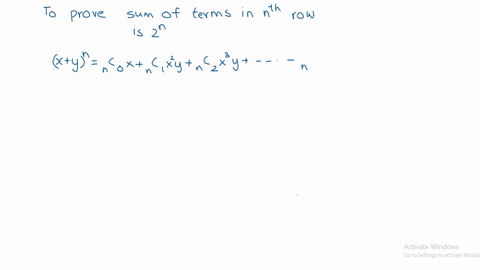 To prove sum of terms in nᵗʰ row
is 2ⁿ
(x+y)ⁿ = ₙC₀x + ₙC₁x²y + ₙC₂x³y + ----- ₙ
Activate Windows
Go to Settings to activate Windows